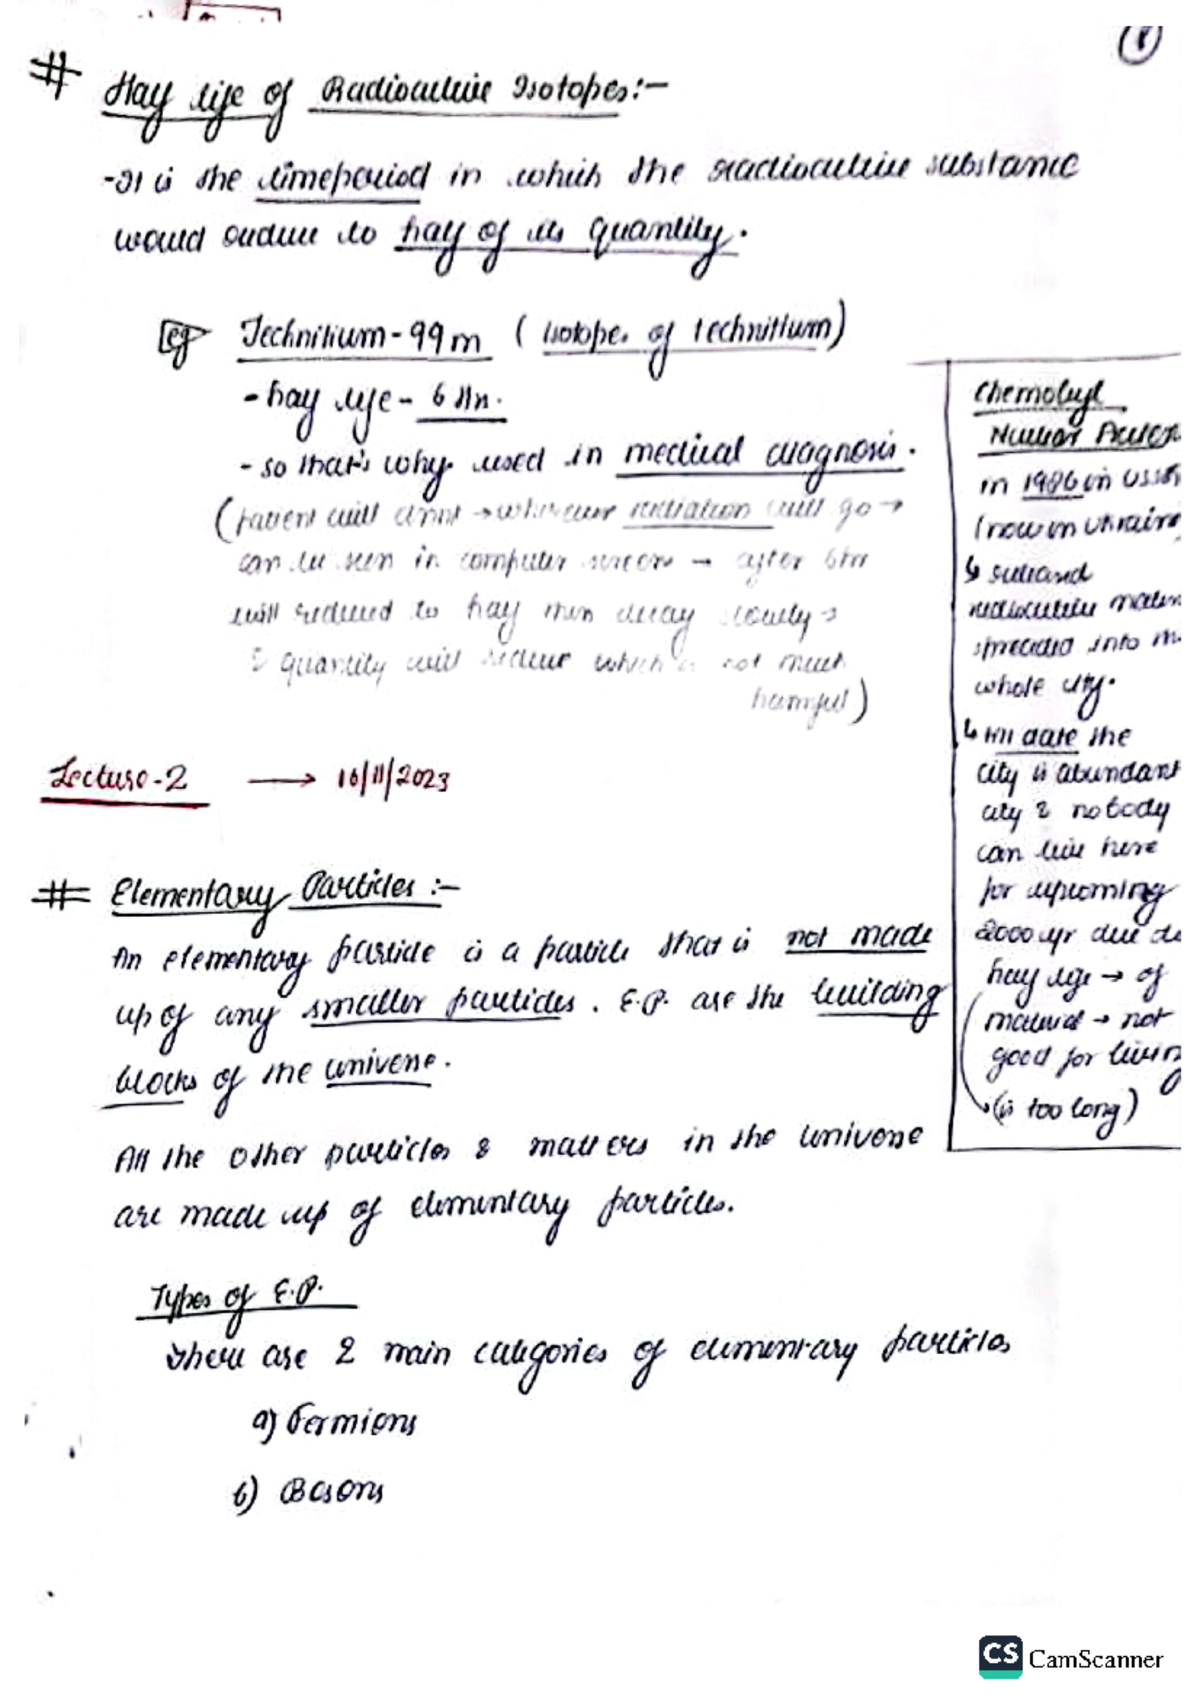 (8)
# Half life of Radioactive Isotopes:-
-It is the timeperiod in which the radioactive substance
would reduce to half of its quantity.
eg Technitium-99m (isotope of technitium)
- half life - 6 Hr.
- so that's why used in medical diagnosis.
(patient will drink → wherever radiation will go →
can be seen in computer screen → after 6hr
will reduced to half then decay slowly →
& quantity will reduce which is not much
harmful)
Chernobyl
Nuclear
in 1986 in USSR
(now in Ukraine
↳ released
radioactive
spreaded into
whole city.
↳ till date the
city is abundant
city & nobody
can live here
for upcoming
2000 yr due
half life → of
material → not
good for living
→ (is too long)
Lecture-2 → 16/11/2023
# Elementary Particles :-
An elementary particle is a particle that is not made
up of any smaller particles. E.P. are the building
blocks of the universe.
All the other particles & matters in the universe
are made up of elementary particles.
Types of E.P.
There are 2 main categories of elementary particles
a) Fermions
b) Bosons
CS CamScanner